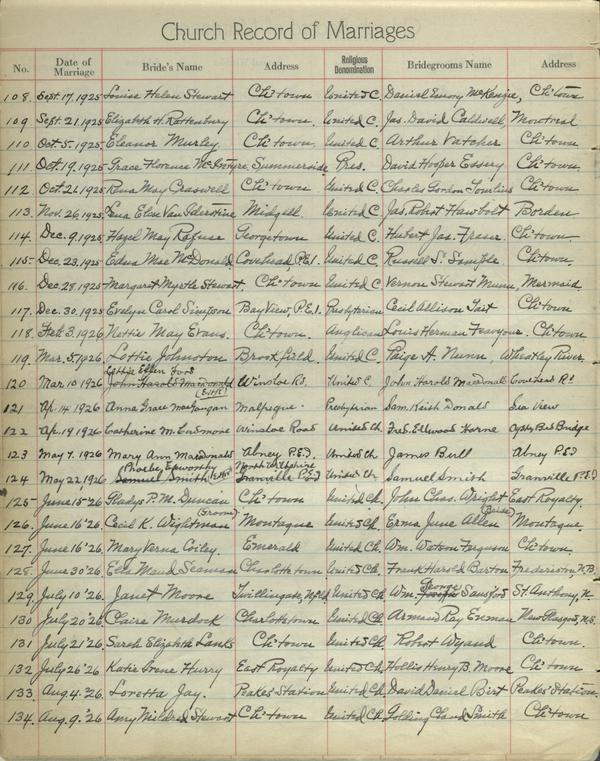 Church Record of Marriages
No. Date of Marriage Bride's Name Address Religious Denomination Bridegrooms Name Address
108. Sept. 17, 1925 Louise Helen Stewart Ch'town United C. Daniel Emory McKenzie, Ch'town
109 Sept. 21, 1925 Elizabeth H. Rattenbury Ch'town. United C. Jas. David Caldwell, Montreal
110 Oct. 5, 1925 Eleanor Murley Ch'town. United C. Arthur Vatcher Ch'town.
111. Oct. 19, 1925 Grace Florence McIntyre, Summerside Pres. David Hooper Essery Ch'town.
112. Oct. 21 1925 Rena May Craswell Ch'town United C. Charles Gordon Tomlins Ch'town.
113. Nov. 26, 1925 Lena Elise Van Iderstine Midgell. United C. Jas. Robert Hawbolt Borden
114. Dec. 9, 1925 Hazel May Rafuse Georgetown United C. Hubert Jas. Fraser. Ch'town.
115- Dec. 23, 1925 Edna Mae McDonald, Covehead, P.E.I. United C. Russell S. Ch'town.
116. Dec. 28, 1925 Margaret Myrtle Stewart, Ch'town United C. Vernon Stewart Munn, Mermaid.
117. Dec. 30, 1925 Evelyn Carol Simpson Bay View, P.E.I. Presbyterian Cecil Allison Ch'town
118. Feb. 3, 1926 Nettie May Evans. Ch'town. Anglican Louis Herman Feavyour. Ch'town.
119. Mar. 5, 1926 Lottie Johnston Brookfield. United C. Paige A. Nunn, Wheatley River.
Lottie Ellen Ford
120 Mar 10 1926 John Harold MacDonald Winsloe Rd. United C. John Harold MacDonald Covehead Rd
121 Ap. 14 1926 Anna Grace Malpeque. Presbyterian Sam. Keith Donald Sea View
122 Ap. 19 1926 Catherine M. Ludmore Winsloe Road United Ch. Fred. Ellwood Horne Bridge
123 May 7. 1926 Mary Ann MacDonald Abney P.E.I. United Ch James Bell Abney P.E.I
Phoebe Epworthy North Wiltshire
124 May 22, 1926 Samuel Smith Granville P.E.I United Ch. Samuel Smith Granville P.E.I
125- June 15-'26 Gladys P. M. Duncan Ch'town United Ch. John Chas. Wright East Royalty.
(Groom) (Bride)
126. June 16'26. Cecil K. Wightman Montague United Ch. Erma June Allen Montague.
127. June 16'26. Mary Verna Coiley. Emerald United Ch. Wm. Watson Ferguson Ch'town.
128. June 30'26 Ella Maud Seaman Charlottetown United Ch. Frank Harold Barton Fredericton, N.B.
George
129. July 10 '26 Janet Moore Twillingate, Nfld United Ch. Wm. Joseph St. Anthony, N.
130 July 20 '26 Claire Murdock Charlottetown United Ch. Armand Ray Enman New Glasgow, N.S.
131 July 21 '26 Sarah Elizabeth Lanks Ch'town United Ch. Robert Wyand Ch'town.
132 July 26 '26 Katie Irene Hurry East Royalty United Ch. Hollis Henry B. Moore Ch'town
133. Aug. 4. '26. Loretta Jay. Peakes Station United Ch. David Daniel Birt Peakes Station.
134. Aug. 9. '26 Amy Mildred Stewart Ch'town United Ch. Smith Ch'town